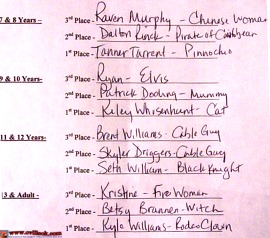 7 & 8 Years- 3rd Place - Raven Murphy - Chenese Woman
2nd Place - Dalton Rink - Pirate of Caribbean
1st Place - Tanner Tarrent - Pinnochio
9 & 10 Years- 3rd Place - Ryan - Elvis
2nd Place - Patrick Dooling - Mummy
1st Place - Kiley Whisenhunt - Cat
11 & 12 Years- 3rd Place - Brent Williams - Cable Guy
2nd Place - Skyler Driggers - Cable Guy
1st Place - Seth William - Black Knight
13 & Adult - 3rd Place - Kristine - Fire Woman
2nd Place - Betsy Brannen - Witch
1st Place - Kyle Williams - Rodeo Clown